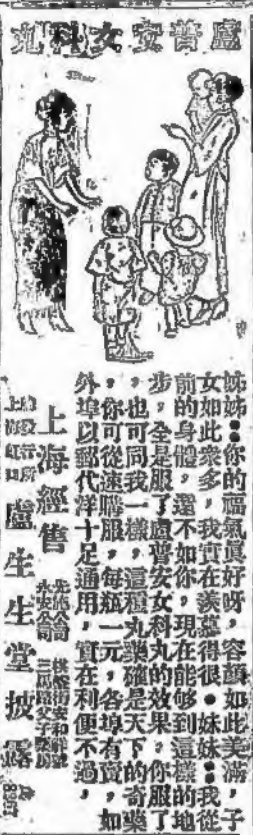 盧普安女科丸
姊姊：你的福氣真好呀，容顏如此美滿，子
女如此衆多，我實在羨慕得很。妹妹：我從
前的身體，還不如你，現在能够到這樣的地
步，全是服了盧普安女科丸的效果，你服了
，也可同我一樣，這種丸藥確是天下的奇藥
，你可從速購服，每瓶一元，各埠有賣，如
外埠以郵代洋十足通用，實在利便不過，
上海經售
先施公司
永安公司
三馬路父子藥房
上海虹口
盧生生堂披露